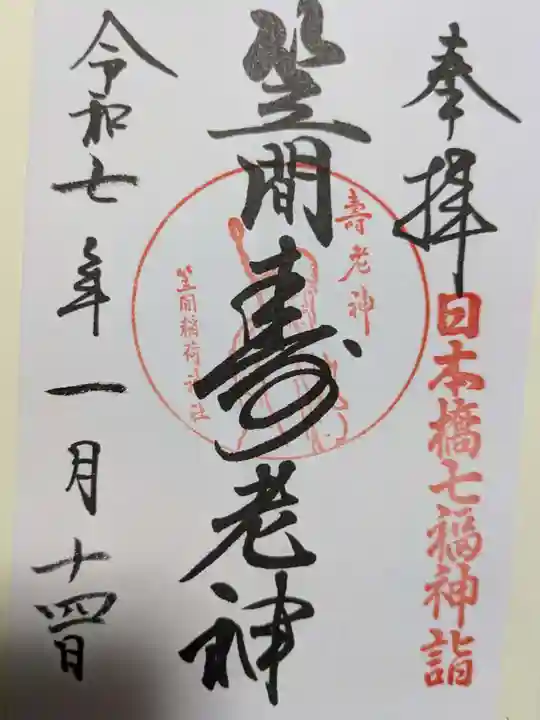 奉拝
日本橋七福神詣
笠間寿老神
壽老神
笠間稲荷神社
令和七年一月十四日